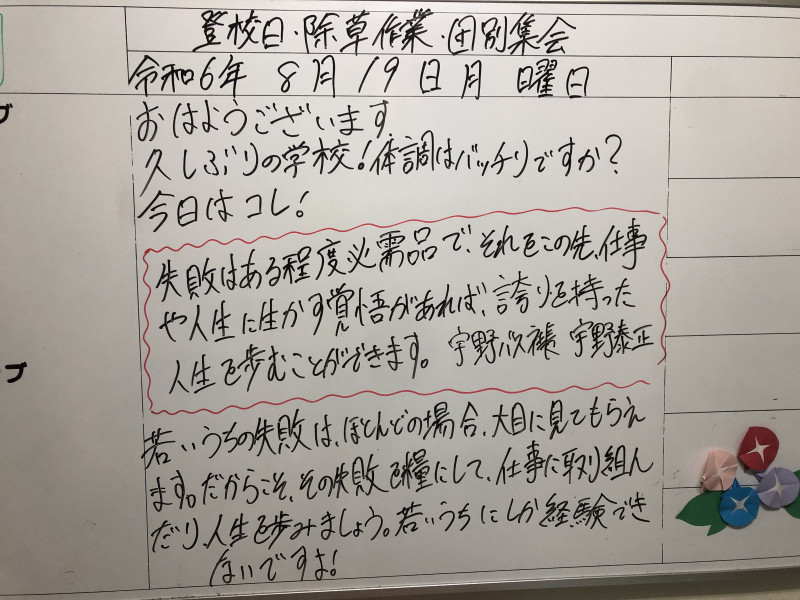 登校日・除草作業・団別集会
令和6年 8月19日 月 曜日
おはようございます
久しぶりの学校!体調はバッチリですか?
今日はコレ!
失敗はある程度必需品で、それをこの先、仕事
や人生に生かす覚悟があれば、誇りを持った
人生を歩むことができます。 宇野バス 宇野泰正
若いうちの失敗は、ほとんどの場合、大目に見てもらえ
ます。だからこそ、その失敗を糧にして、仕事に取り組ん
だり、人生を歩みましょう。若いうちにしか経験でき
ないですよ!
プ
プ